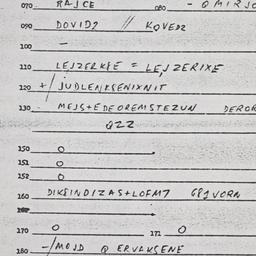 070 RAJCE 080 - OMIRJO
090 DOVID2 // KOVED2
100 -
110 LEJZERKEE = LEJZERIXE
120 +/JUDLENKSENIXNIT
130 MEJS+EDEOREMSTEZUN DEROR
022
150 0
151 0
152 0
160 DIKSINDIZAS+LOFM7 681VORN
170 0 171 0
180 -/MOJD @ ERVAKSENE